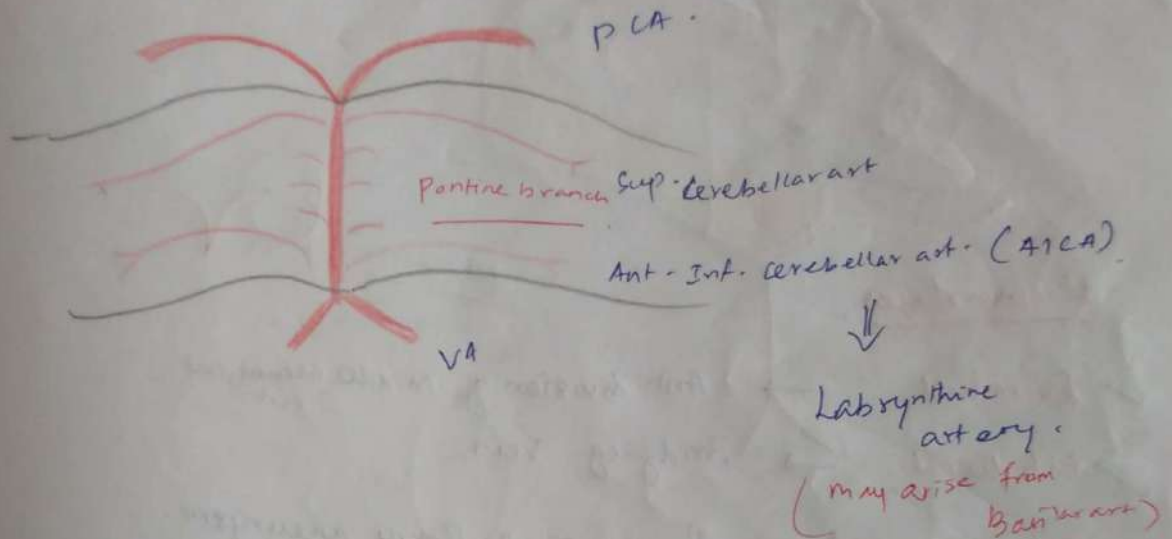 PCA.
Pontine branch Sup. Cerebellar art
Ant - Inf. cerebellar art. (AICA).
VA
Labrynthine
artery.
(may arise from
Basilar art)